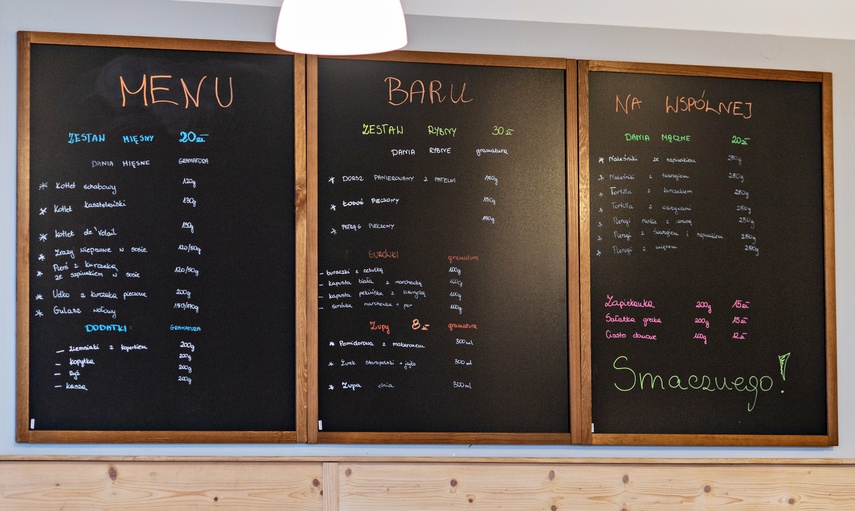 MENU
ZESTAW MIĘSNY 20 zł
DANIA MIĘSNE GRAMATURA
* Kotlet schabowy 120g
* Kotlet kasztelański 130g
* Kotlet de'Volai 190g
* Zrazy wieprzowe w sosie 120/50g
* Pierś z kurczaka
ze szpinakiem w sosie 120/50g
* Udko z kurczaka pieczone 200g
* Gulasz wołowy
DODATKI GRAMATURA
– ziemniaki z koperkiem 200g
– kopytka 200g
– ryż 200g
– kasza 200g
BARU
ZESTAW RYBNY 30 zł
DANIA RYBNE gramatura
* DORSZ PANIEROWANY Z PATELNI 150g
* ŁOSOŚ PIECZONY 150g
* PSTRĄG PIECZONY 150g
SURÓWKI gramatura
– buraczki z cebulką 100g
– kapusta biała z marchewką 100g
– kapusta pekińska z 100g
– surówka marchewka + por 100g
Zupy 8 zł gramatura
* Pomidorowa z makaronem 300ml
* Żurek staropolski + jajko 300ml
* Zupa dnia 300ml
NA WSPÓLNEJ
DANIA MĄCZNE 20 zł
* Naleśniki ze szpinakiem 250g
* Naleśniki z twarogiem 250g
* Tortilla z kurczakiem 250g
* Tortilla z warzywami 250g
* Pierogi ruskie z 250g
* Pierogi z twarogiem i szpinakiem 250g
* Pierogi z mięsem 250g
Zapiekanka 200g 15 zł
Sałatka grecka 200g 15 zł
Ciasto domowe 100g 12 zł
Smacznego!